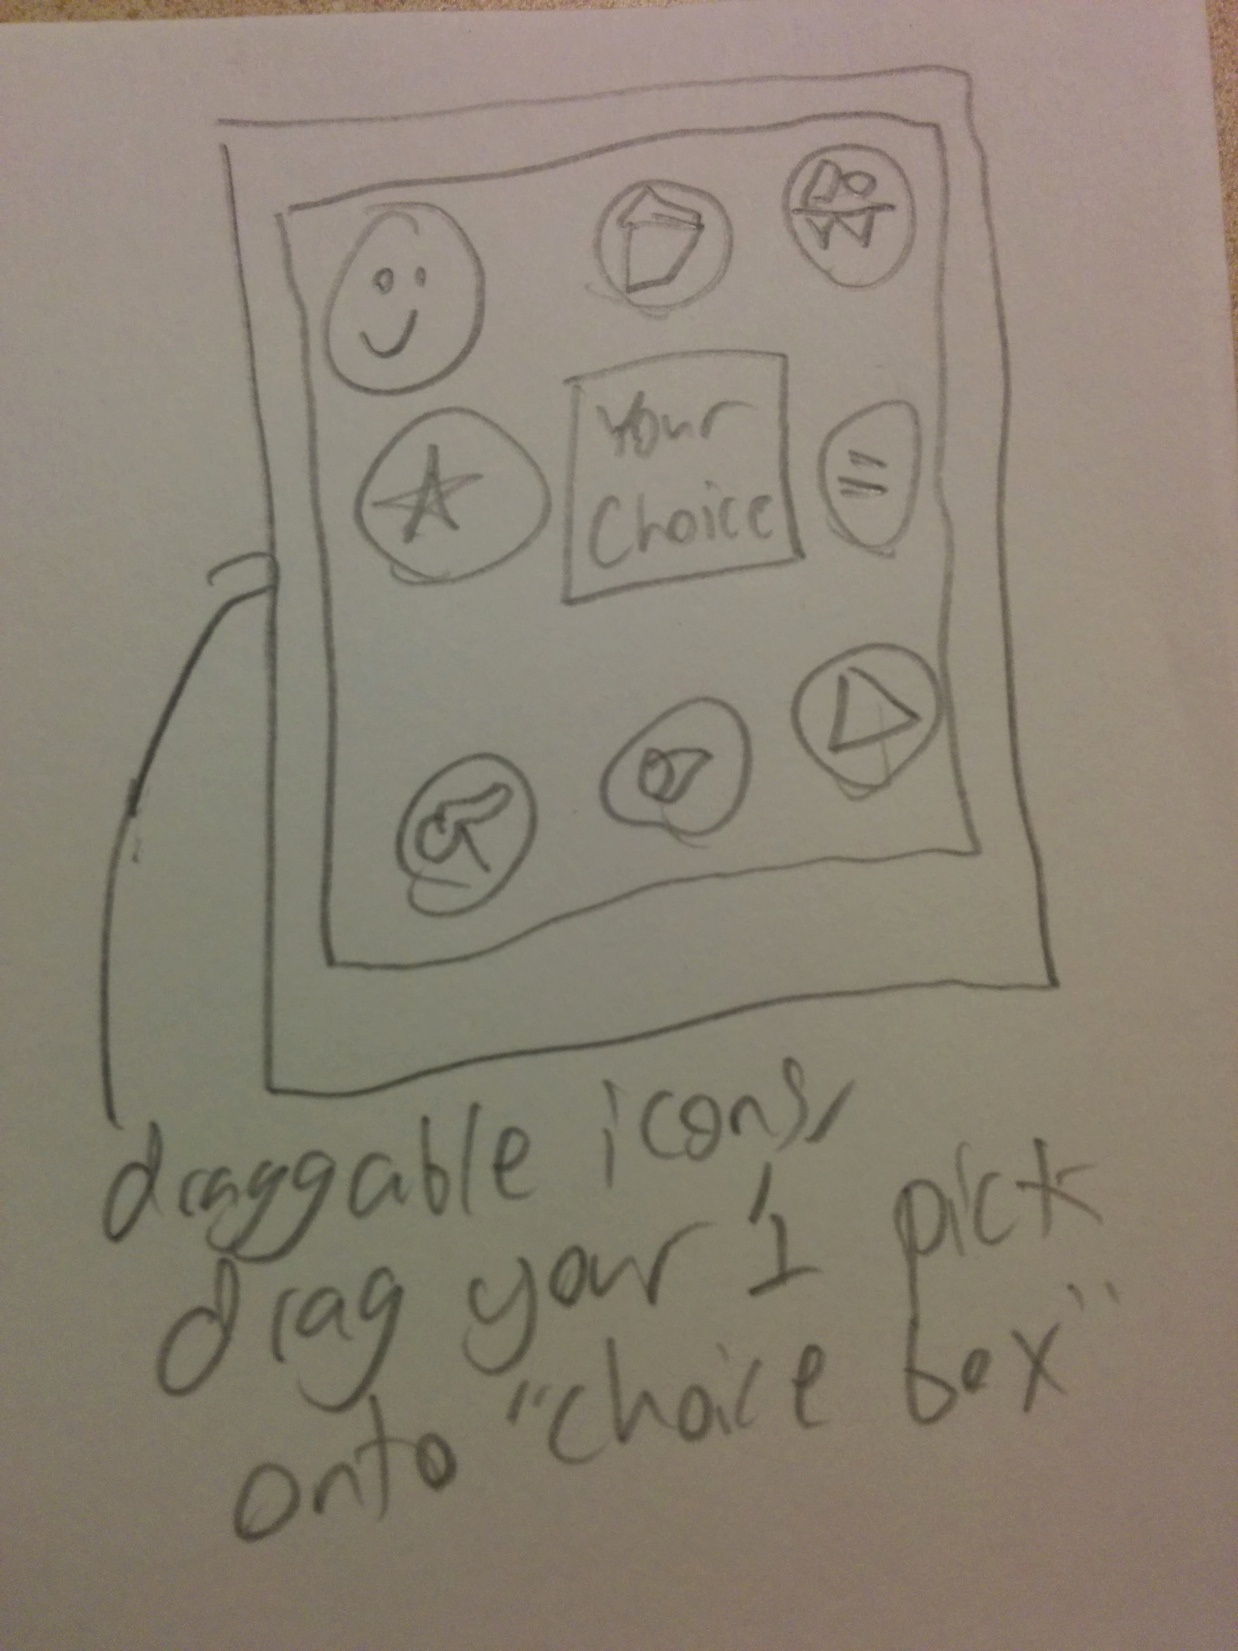 Your
Choice
draggable icons,
drag your 1 pick
onto "choice box"